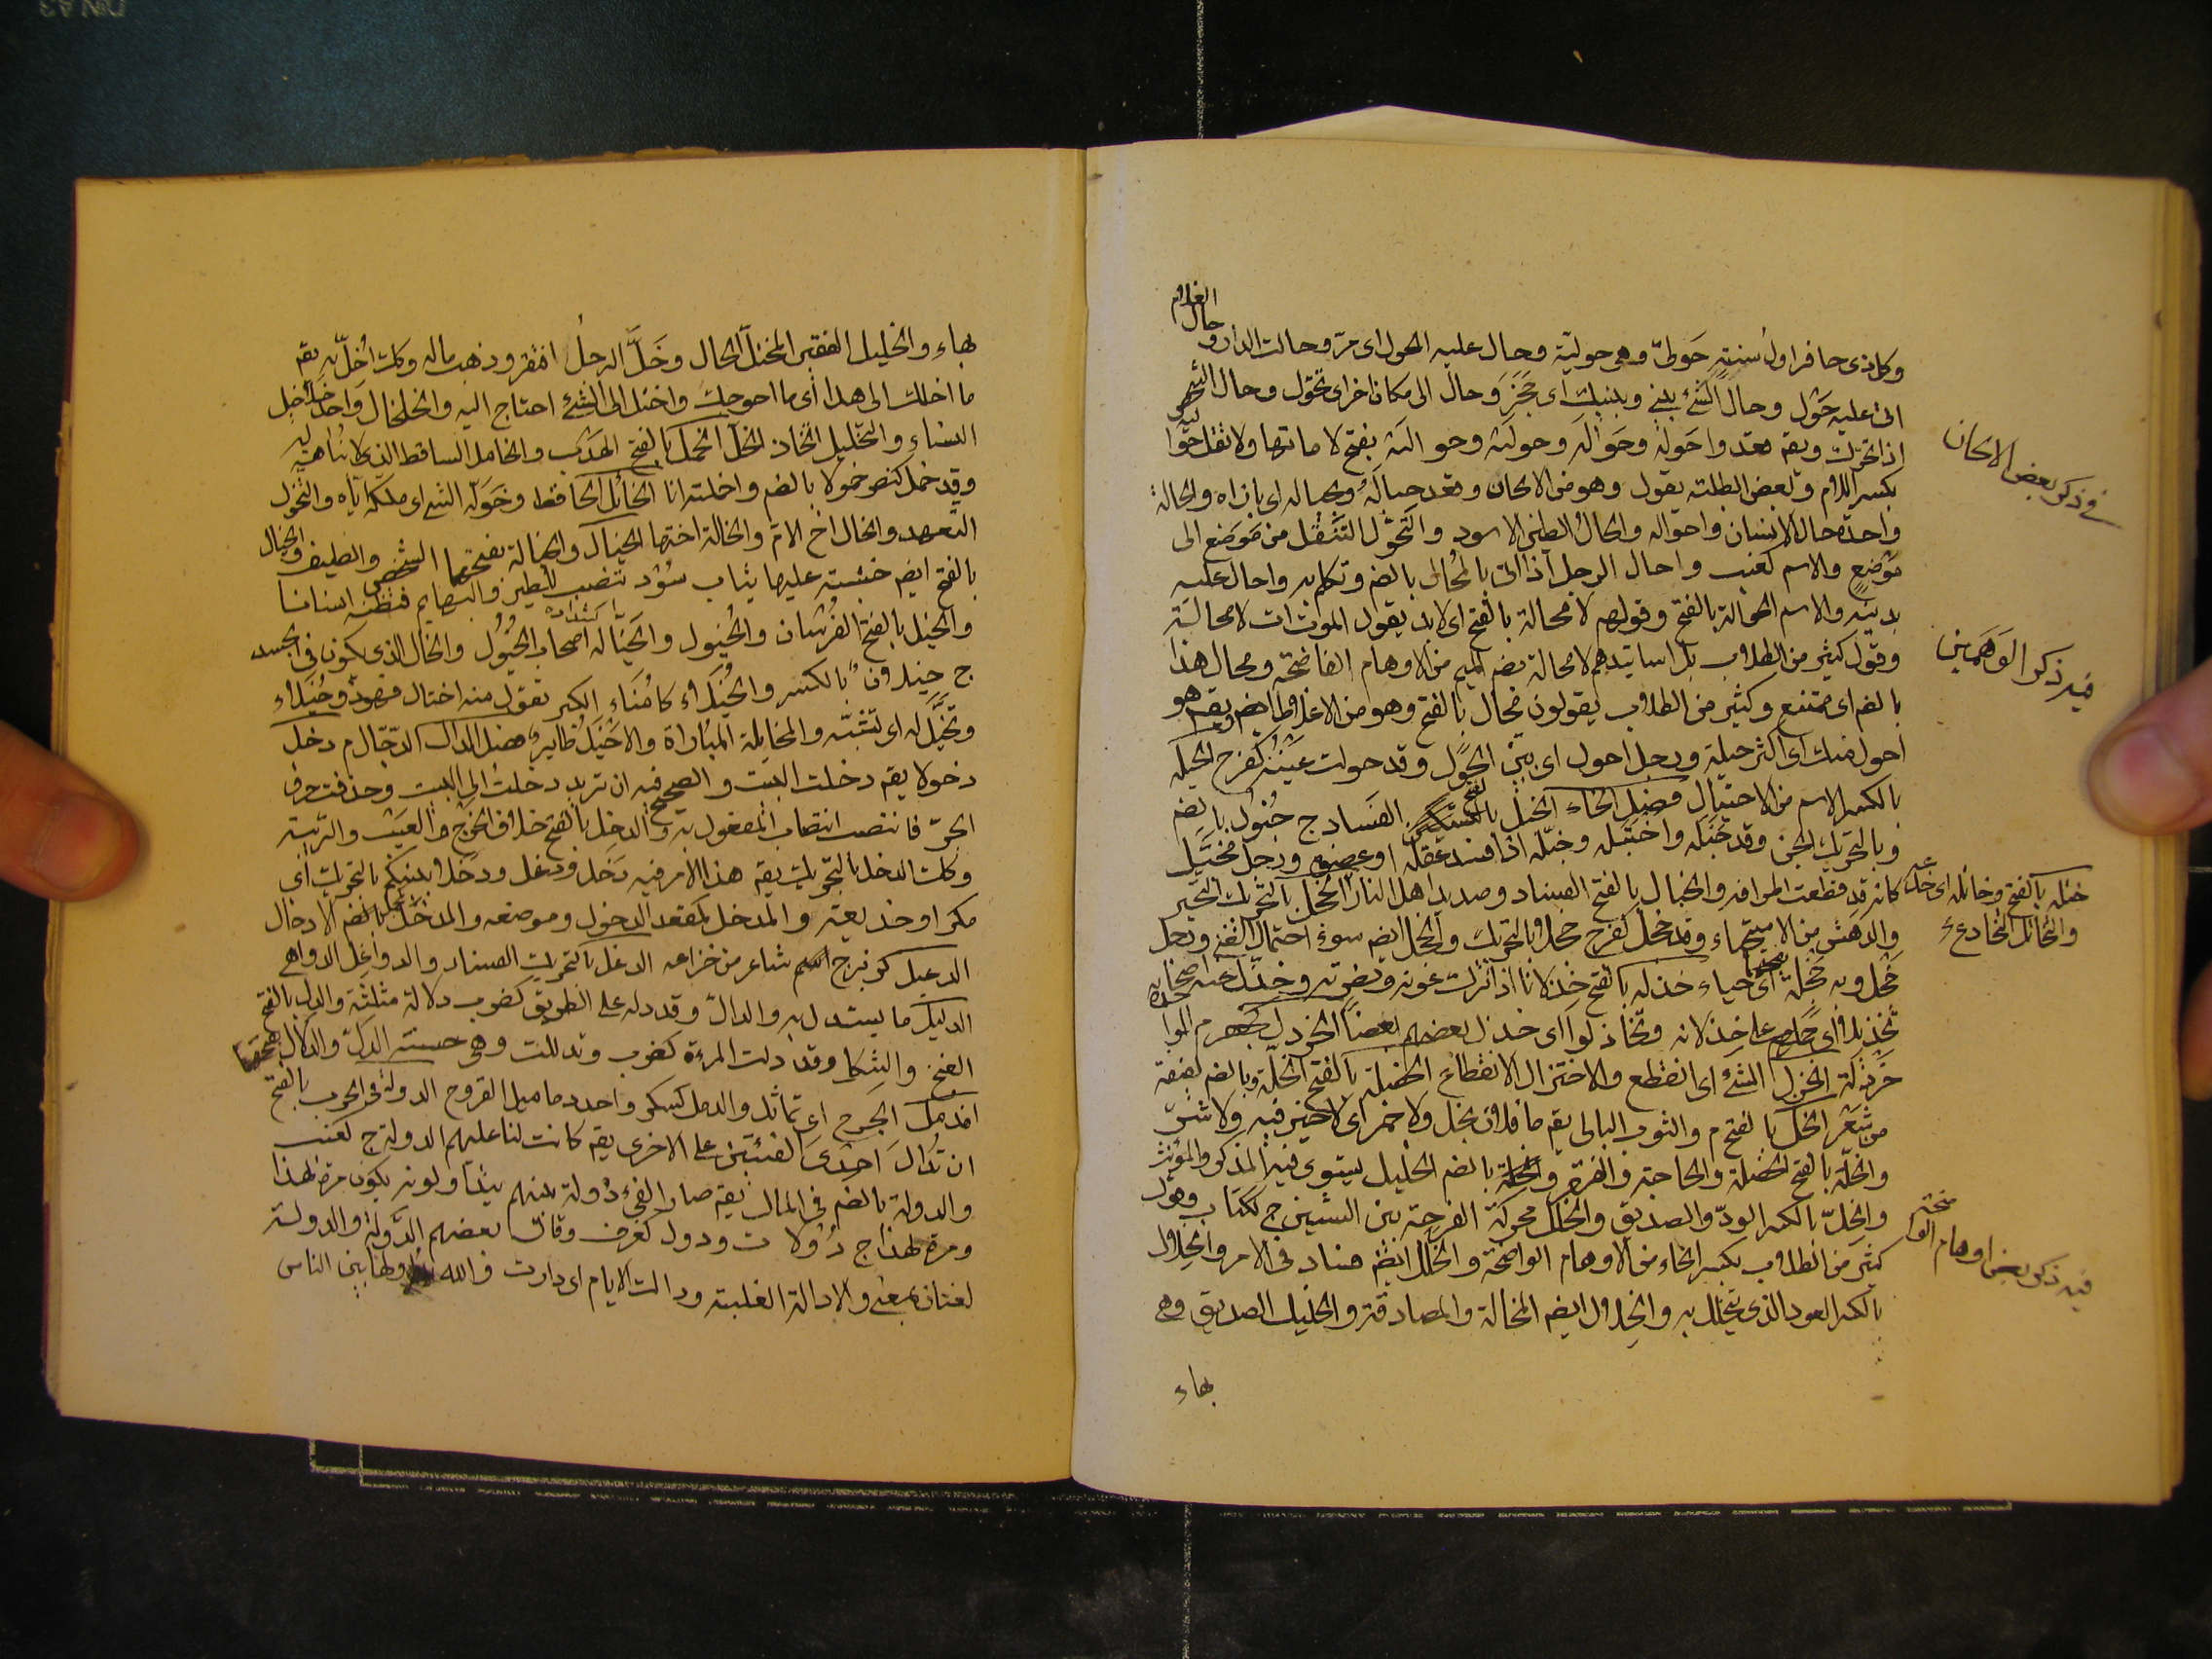 وكل ذى حافر اول سنته حولىّ وهى حولية وحال عليه الحول اى مرّ وحالت الدار و
حال الغلام
اتى عليه حَوْل وحال الشئ بينى وبينك اى حجز وحال الى مكان اخر اى تحول وحال الشخص
اذا تحرك ويقم قعدوا حوله وحواله وحوليه وحواليه بفتح لاماتها ولا تقل حواليه
بكسر اللام وبعض الطلبة يقول وهو من الالحان وقعد حياله وبحياله اى بازاه والحالة
واحدة حال الانسان واحواله والحال الطين الاسود والتحول التنقل من موضع الى
موضع والاسم كعنب واحال الرجل اذا اتى بالمُحال بالضم وتكلم به واحال عليه
بدينه والاسم الحوالة بالفتح وقولهم لا محالة بالفتح اى لابد يقول الموت ات لا محالة
وقول كثير من الطلاب بل اساتيدهم لا محالة بضم الميم من الاوهام الفاضحة ومحال هذا
بالضم اى ممتنع وكثير من الطلاب يقولون محال بالفتح وهو من الاغلاط ايضا ويقم هو
احول منك اى اكثر حيلة ورجل احول اى بيّن الحول وقد حولت عينه كفرح الحيلة
بالكسر الاسم من الاحتيال فصل الخاء الخبل بالفتح الفساد ج خبول بالضم
وبالتحريك الجن وقد خبله واختبله وخبّله اذا افسد عقله او عضوه ورجل مخبّل
كانه قد قطعت اطرافه والخبال بالفتح الفساد وصديد اهل النار الخجل بالتحريك التحير
والدهش من الاستحياء وقد خجل كفرح خجلا بالتحريك والخجل ايضم سوء احتمال الغنى ورجل
خجل وبه خجلة اى حياء خذله بالفتح خذلانا اذا ترك عونه ونصرته وخذّل عنه اصحابه
تخذيلا اى حملهم على خذلانه وتخاذلوا اى خذل بعضهم بعضا الخردل كجعفر م
خزله الخزل الشئ اى انقطع والاختزال الانقطاع الخصلة بالفتح الخلة وبالضم لفيفة
من شعر الخل بالفتح م والثوب البالى يقم ما فلان بخل ولا خمر اى لا خير فيه ولا شر
والخلّة بالفتح الخصلة والحاجة والفقر والخلة بالضم الخليل يستوى فيه المذكر والمؤنث
والخلّ بالكسر الودّ والصديق والخلل محركة الفرجة بين الشيئين ج ككتاب وقول
كثير من الطلاب بكسر الخاء من الاوهام الواضحة والخلل ايضم فساد فى الامر والخلال
بالكسر العود الذى يتخلل به والخلال ايضم المخالة والمصادقة والخليل الصديق وهى
بهاء
فى ذكر بعض الالحان
فيه ذكر الوهمين
ختله بالفتح وخاتله اى خدعه
والتخاتل التخادع
فيه ذكر بعض اوهام الواضحة
بهاء والخليل الفقير المختل الحال وخلّ الرجل افتقر وذهب ماله وكك اُخلّ به يقم
ما اخلك الى هذا اى ما احوجك واختل الى الشئ احتاج اليه والخلخال واحد خلاخيل
النساء والتخليل اتخاذ الخل الخمل بالفتح الهدب والخامل الساقط الذى لا نباهة له
وقد خمل كنصر خمولا بالضم واخملته انا الخائل الحافظ وخوّله الشئ اى ملكه اياه والتخول
التعهد والخال اخ الام والخالة اختها الخيال والخيالة بفتحهما الشخص والطيف والخيال
بالفتح ايضم خشبة عليها ثياب سود تنصب للطير والبهايم فتظنه انسانا
والخيل بالفتح الفرسان والخيول والخيّالة اصحاب الخيول والخال الذى يكون فى الجسد
ج خيلان بالكسر والخُيَلاء كامناء الكبر تقول منه اختال فهو ذو خيلاء
وتخيّل له اى تشبه والمخايلة المباراة والاخيل طاير م فصل الدال الدجّال م دخل
دخولا يقم دخلت البيت والصحيح فيه ان تريد دخلت الى البيت وحذفت حرف
الجرّ فانتصب انتصاب المفعول به والدخل بالفتح خلاف الخرج والعيب والريبة
وكك الدخل بالتحريك يقم هذا الامر فيه دخل ودغل ودخلا بينكم بالتحريك اى
مكرا وخديعة والمدخل كمقعد الدخول وموضعه والمدخل بالضم الادخال
الدعبل كزبرج اسم شاعر من خزاعه الدغل بالتحريك الفساد والدواغل الدواهى
الدليل ما يستدل به والدالّ وقد دله على الطريق كضرب دلالة مثلثة والدل بالفتح
الغنج والشكل وقد دلت المرءة كضرب وتدللت وهى حسنة الدلّ والدلال بفتحهما
اندمل الجرح اى تماثل والدمل كسكر واحد دماميل القروح الدولة فى الحرب بالفتح
ان تدال احدى الفئتين على الاخرى يقم كانت لنا عليهم الدولة ج كعنب
والدولة بالضم فى المال يقم صار الفئ دُولة بينهم يتداولونه يكون مرة لهذا
ومرة لهذا ج دُولات ودول كغرف وقال بعضهم الدَّولة والدولة
لغتان بمعنى والادالة الغلبة ودالت الايام اى دارت والله يداولها بين الناس